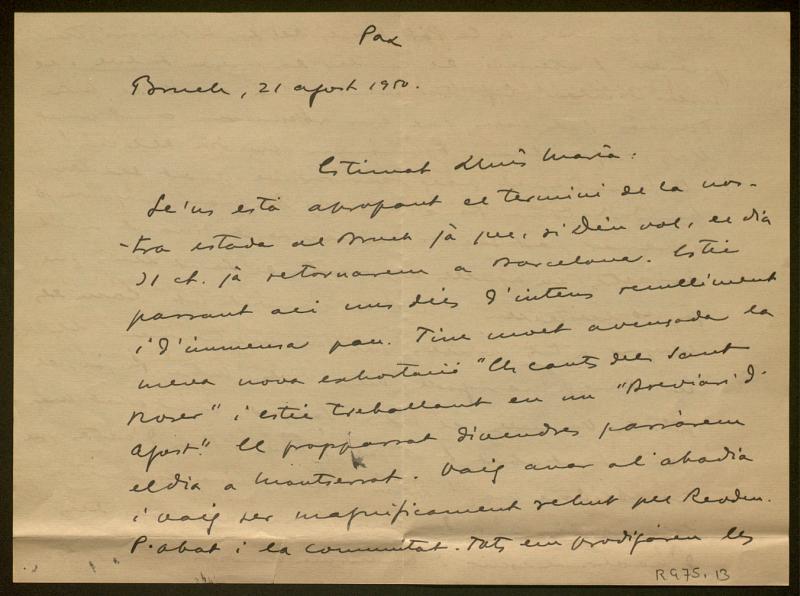 Pax
Bruch, 21 agost 1950.
Estimat Lluís Maria:
Se'ns està apropant el termini de la nos-
tra estada al Bruch jà que, si Déu vol, el dia
31 ct. jà retornarem a Barcelona. Estic
passant aci uns dies d'intens recolliment
i d'immensa pau. Tinc molt avençada la
meva nova exhortació "Els cants del Sant
Roser" i estic treballant en un "Breviari d'
Agost". El proppassat divendres passàrem
el dia a Montserrat. Vaig anar a l'abadia
i vaig ser magníficament rebut pel Revdm.
P. abat i la comunitat. Tots em prodigaren les
R 975. 13